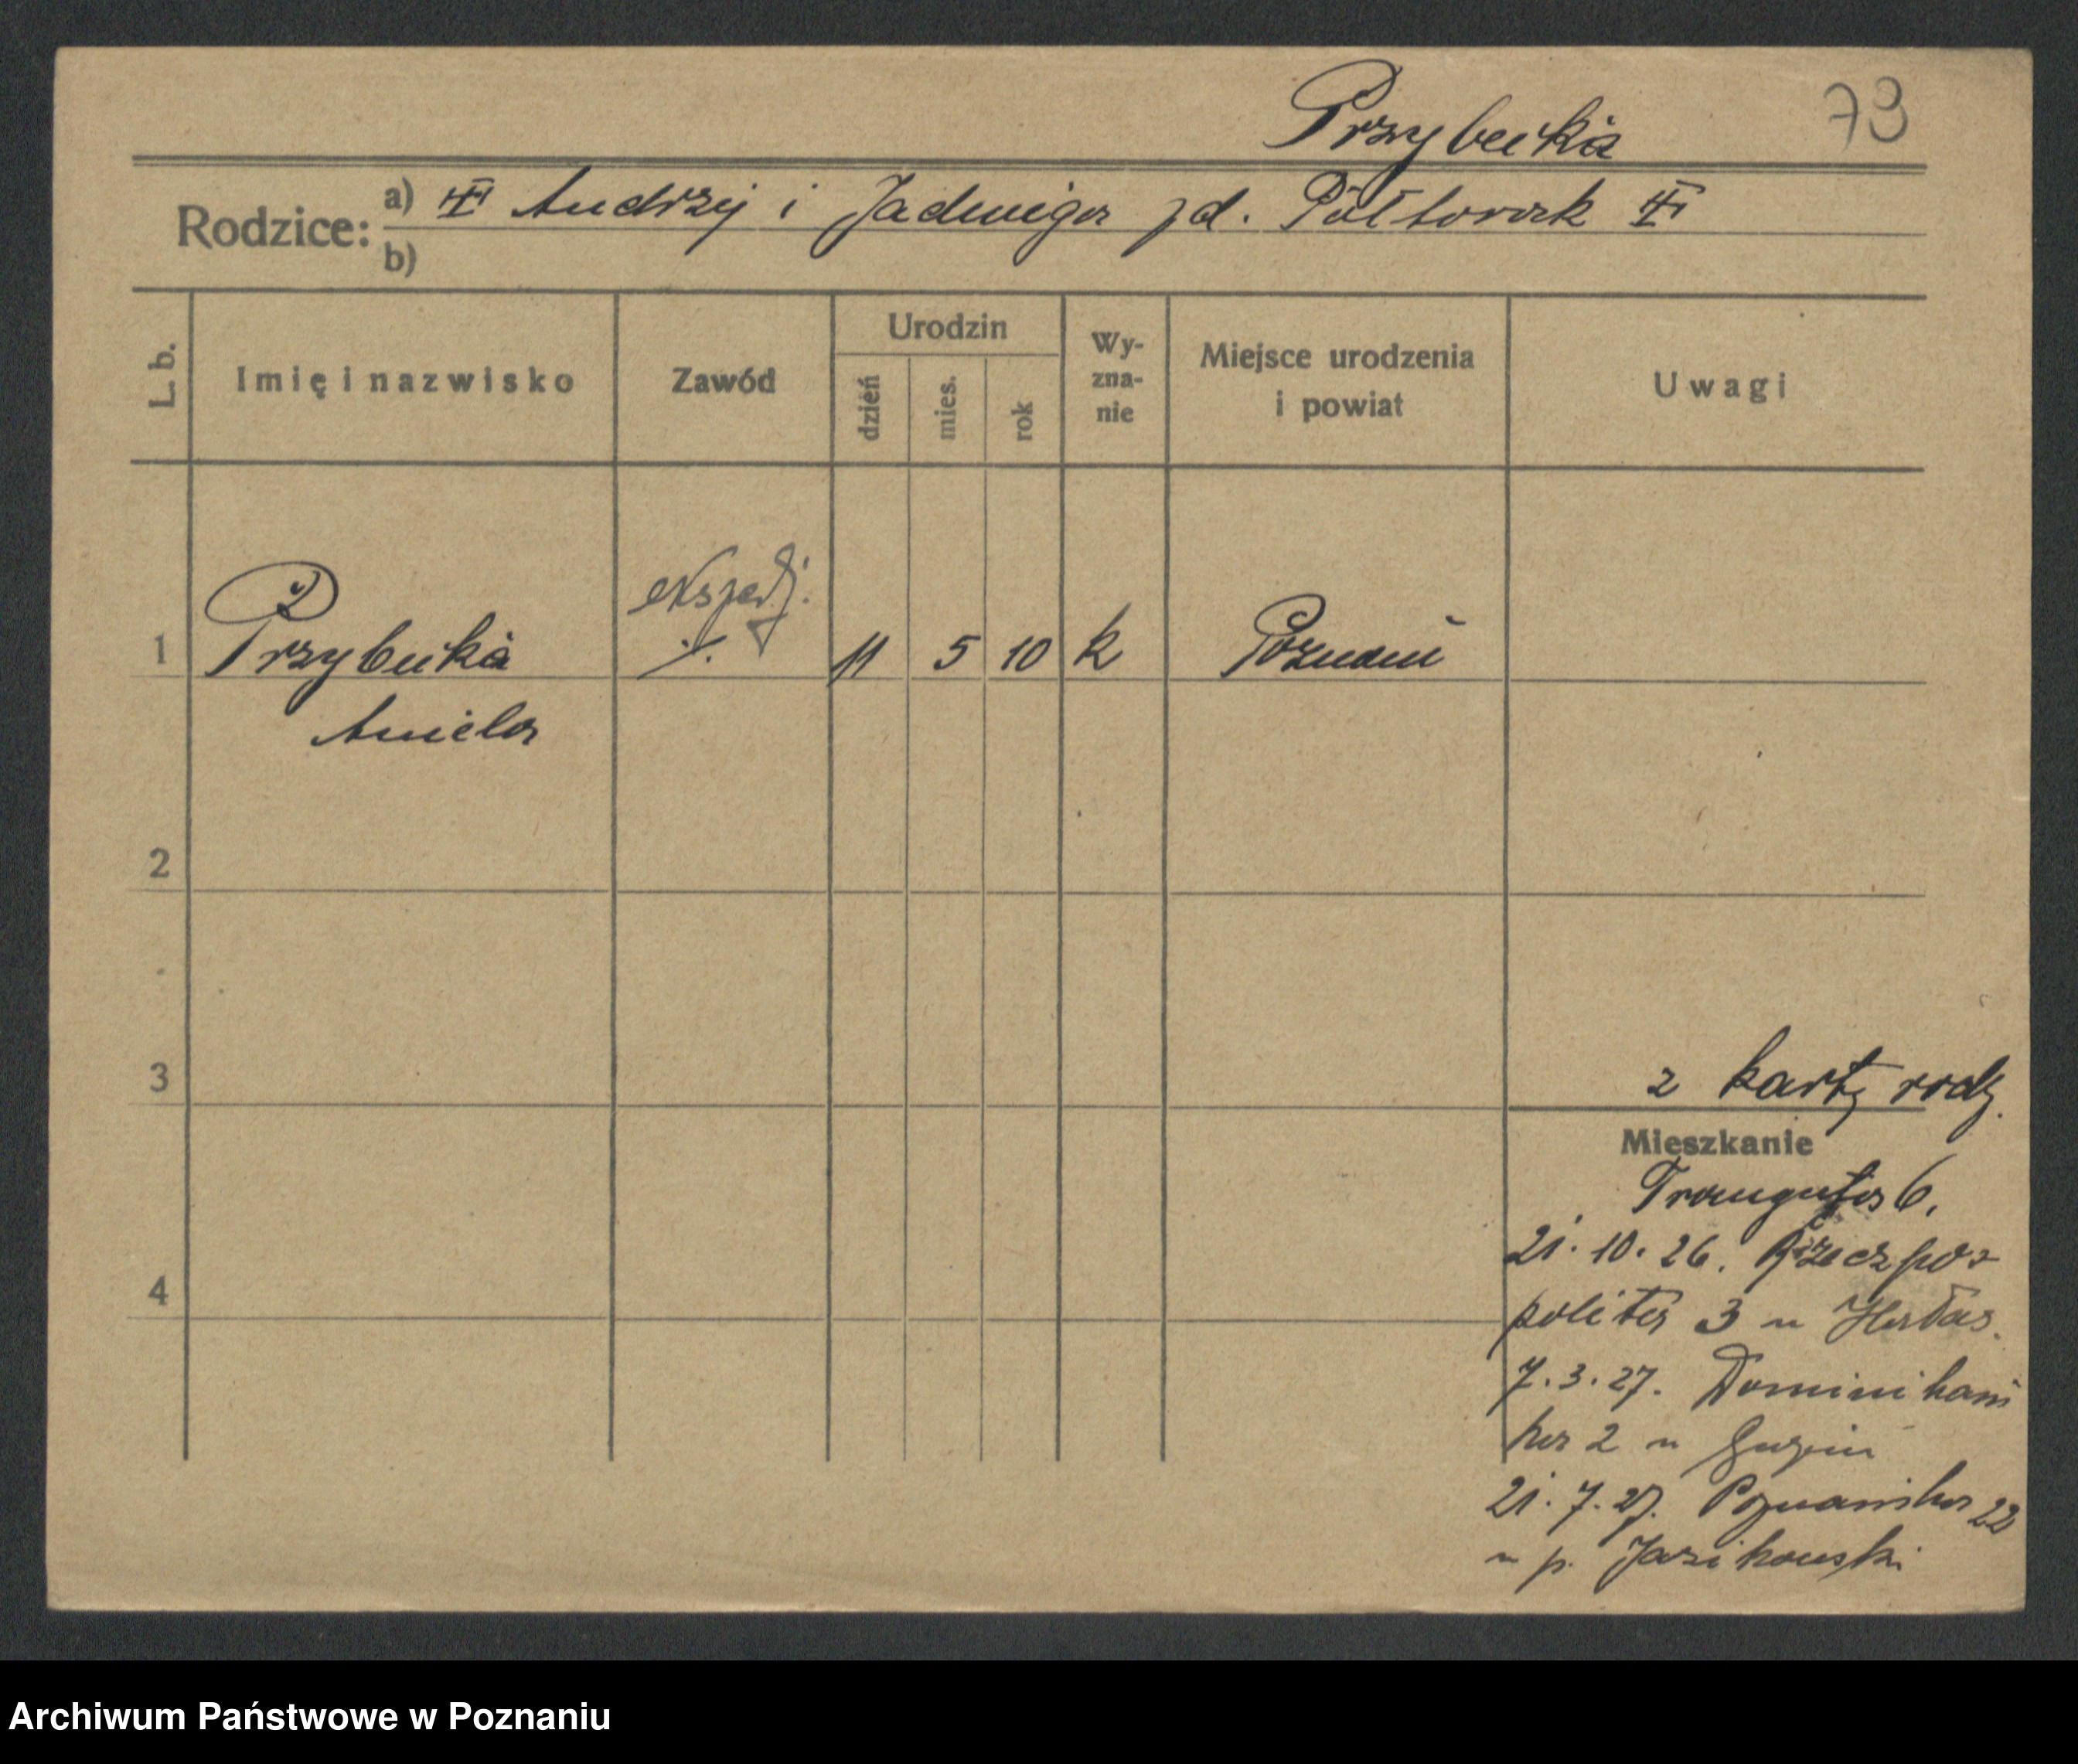 Przybecka
73
Rodzice: a) Andrzej i Jadwiga zd. Półtorak
b)
L. b.
Imię i nazwisko
Zawód
Urodzin
dzień
mies.
rok
Wy-
zna-
nie
Miejsce urodzenia
i powiat
Uwagi
ekspedj.
1 ./. 11 5 10 k Poznań
Aniela
2
3
z karty rodz.
Mieszkanie
Traugutta 6.
21. 10. 26. Rzeczpos-
4
politej 3
7. 3. 27. Dominikań
ska 2 u
21. 7. 27. Poznańska 22
u p.
Archiwum Państwowe w Poznaniu